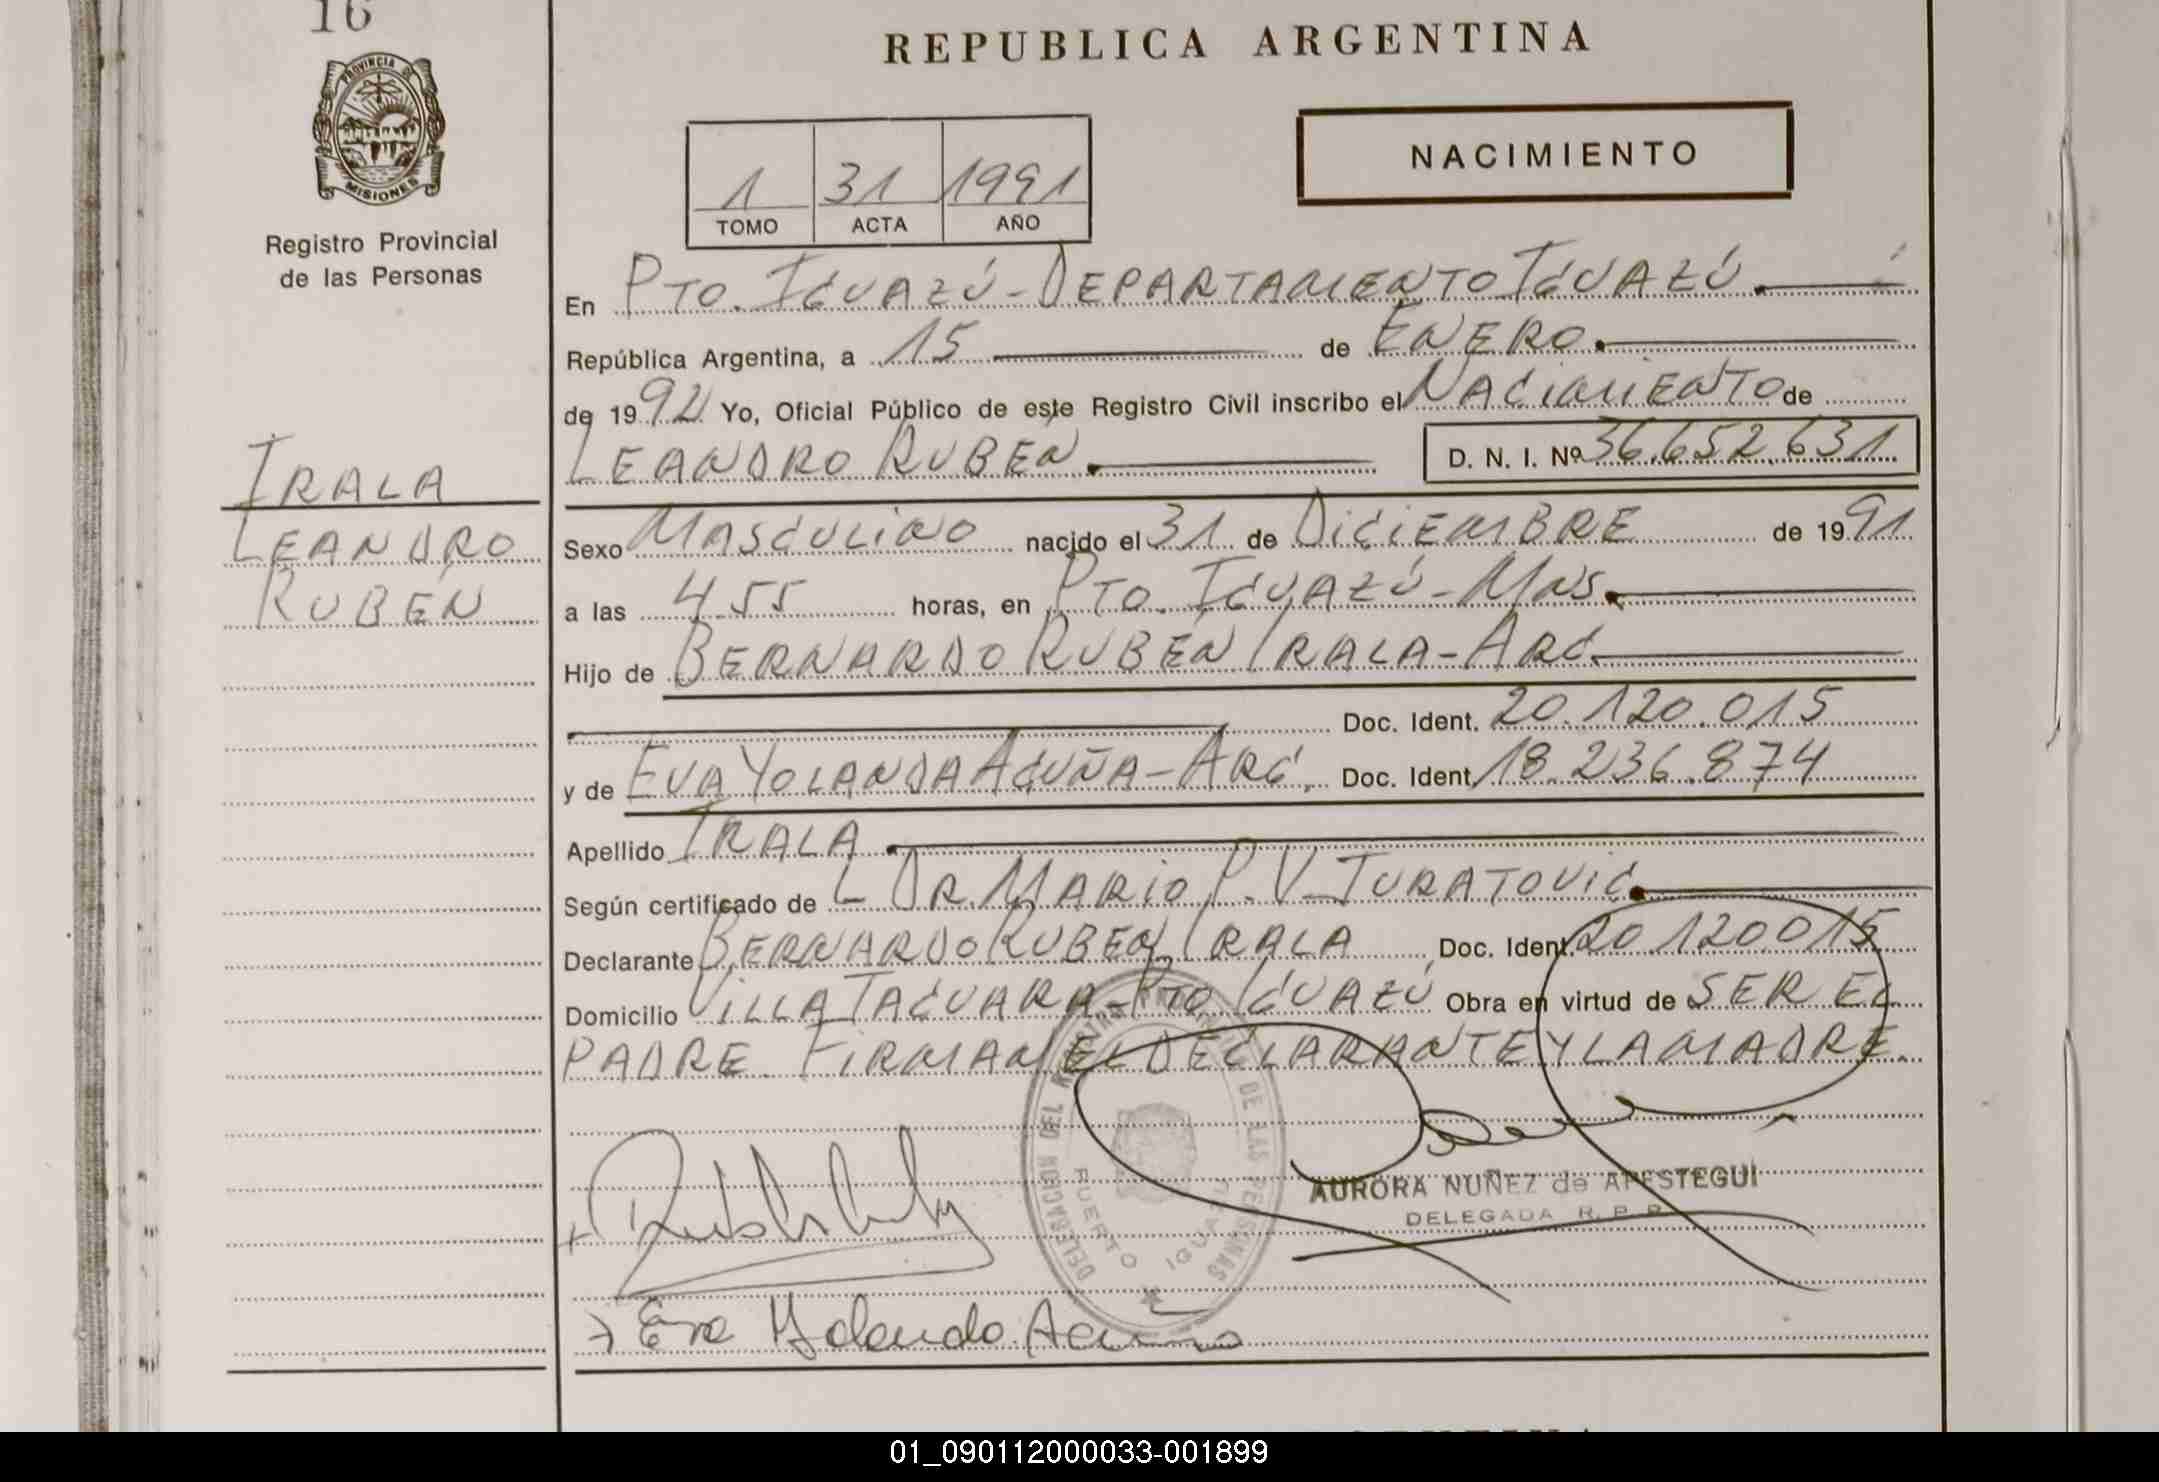 16
PROVINCIA DE
MISIONES
Registro Provincial
de las Personas
IRALA
LEANDRO
RUBÉN
REPUBLICA ARGENTINA
1 31 1991
TOMO ACTA AÑO
NACIMIENTO
En PTO. IGUAZÚ - DEPARTAMENTO IGUAZÚ.
República Argentina, a 15 de ENERO.
de 1992 Yo, Oficial Público de este Registro Civil inscribo el NACIMIENTO de
LEANDRO RUBÉN. D. N. I. Nº 36.652.631
Sexo MASCULINO nacido el 31 de DICIEMBRE de 1991
a las 4.55 horas, en PTO. IGUAZÚ - MNS.
Hijo de BERNARDO RUBÉN IRALA - ARG.
Doc. Ident. 20.120.015
y de EVA YOLANDA ACUÑA - ARG. Doc. Ident. 18.236.874
Apellido IRALA.
Según certificado de L DR. MARIO P. V. JURATOVIC.
Declarante BERNARDO RUBEN IRALA Doc. Ident. 20120015
Domicilio VILLA TACUARA - PTO IGUAZÚ Obra en virtud de SER EL
PADRE. FIRMAN EL DECLARANTE Y LA MADRE.
DELEGACION DEL REGISTRO PROVINCIAL DE LAS PERSONAS
PUERTO IGUAZU
AURORA NUÑEZ de APESTEGUI
DELEGADA R. P. P.
Eva Yolanda Acuña
01_090112000033-001899